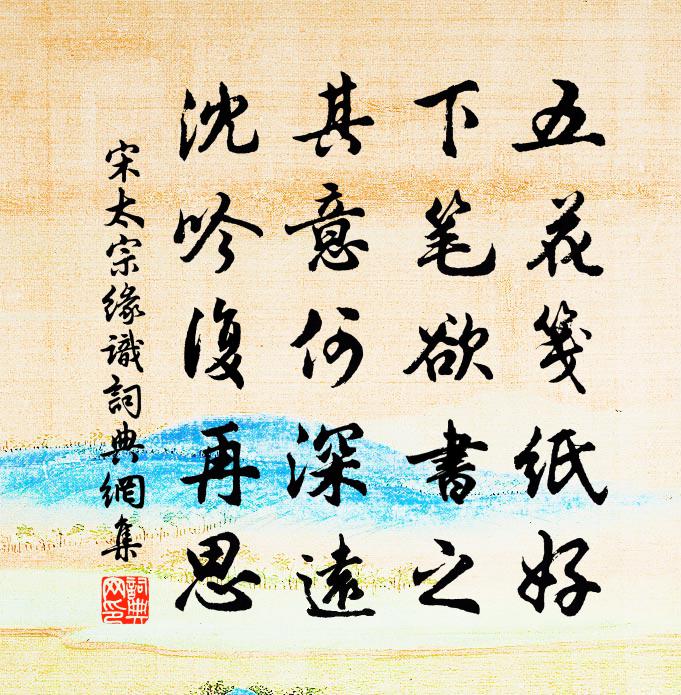 五花箋紙好
下笔欲書之
其意何深遠
沈吟復再思
宋太宗緣識詞典網集
詞典网印